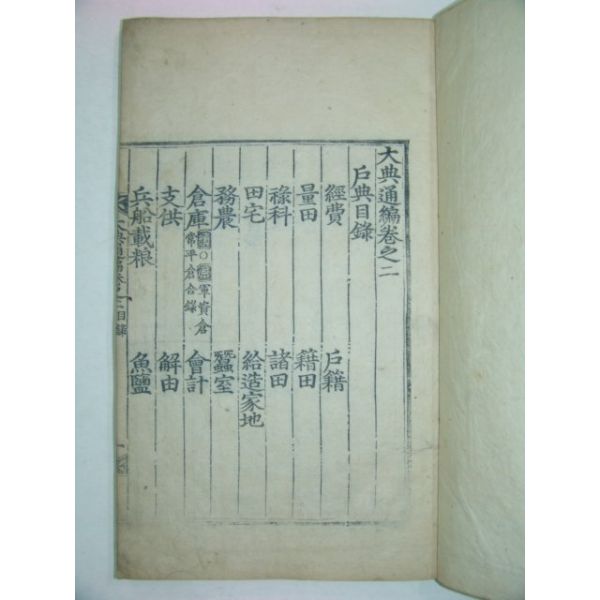 大典通編卷之二
戶典目錄
經費 戶籍
量田 籍田
祿科 諸田
田宅 給造家地
務農 蠶室
倉庫 ○ 軍資倉 常平倉合錄 會計
支供 解由
兵船載粮 魚鹽
大典通編卷之二目錄 一